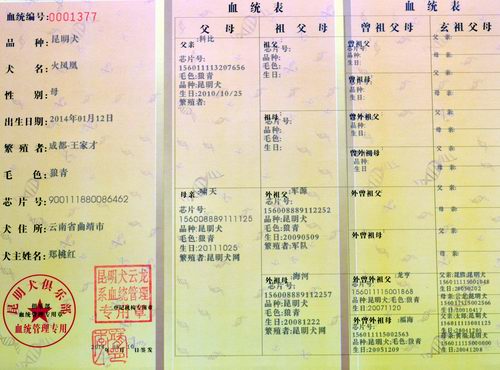 血统编号:0001377
品种:昆明犬
犬名:火凤凰
性别:母
出生日期:2014年01月12日
繁殖者:成都-王家才
毛色:狼青
芯片号:900111880086462
犬住所:云南省曲靖市
犬主姓名:郑桃红
昆明犬俱乐部
血统管理专用
昆明犬云龙
系血统管理
专用章
血统表
父母
祖父母
父亲:科比
芯片号:
156011113207656
毛色:狼青
品种:昆明犬
生日:2010/10/25
繁殖者:
祖父:
芯片号:
品种:
毛色:
生日:
祖母:
芯片号:
品种:
毛色:
生日:
母亲:啸天
芯片号:
156008889111125
品种:昆明犬
毛色:狼青
生日:20111025
繁殖者:昆明犬网
外祖父:军源
芯片号:
156008889112252
品种:昆明犬
毛色:狼青
生日:20090509
繁殖者:军队
外祖母:海河
芯片号:
156011115001502
品种:昆明犬
毛色:狼青
生日:20081222
繁殖者:昆明犬网
血统表
曾祖父母
玄祖父母
曾祖父
芯片号:
品种:
毛色:
生日:
曾祖母:
芯片号:
品种:
毛色:
生日:
曾外祖父:
芯片号:
品种:
毛色:
生日:
曾外祖母:
芯片号:
品种:
毛色:
生日:
外曾祖父:
外曾祖母:
外曾外祖父:龙亨
芯片号:
156011115001868
品种:昆明犬;毛色:狼青
生日:20071120
外曾外祖母:福海
芯片号:
156011115002563
品种:昆明犬;毛色:狼青
生日:20051209
父亲:
母亲:
父亲:
母亲:
父亲:
母亲:
父亲:
母亲:
父亲:
母亲:
父亲:
母亲: